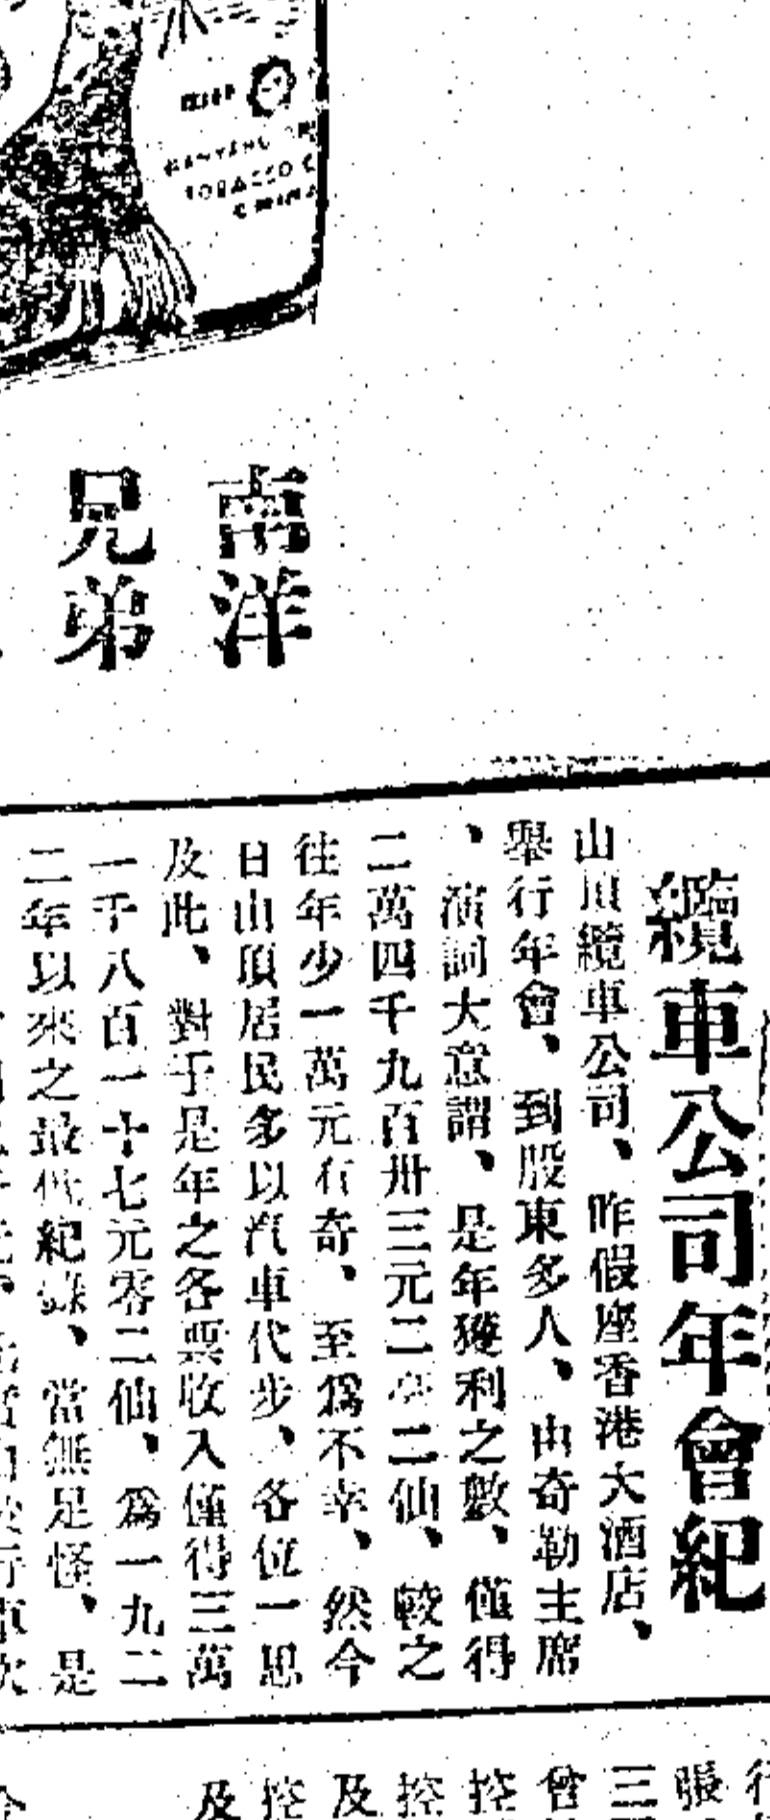 TOBACCO C
南洋
兄弟
纜車公司年會紀
山頂纜車公司、昨假座香港大酒店、
舉行年會、到股東多人、由奇勒主席
、演詞大意謂、是年獲利之數、僅得
二萬四千九百卅三元二二仙、較之
往年少一萬元有奇、至爲不幸、然今
日山頂居民多以汽車代步、各位一思
及此、對于是年之各票收入僅得三萬
一千八百一十七元零二仙、爲一九二
二年以來之最低紀錄、當無足怪、是
行
張
三
曾
控
控
及
控
及